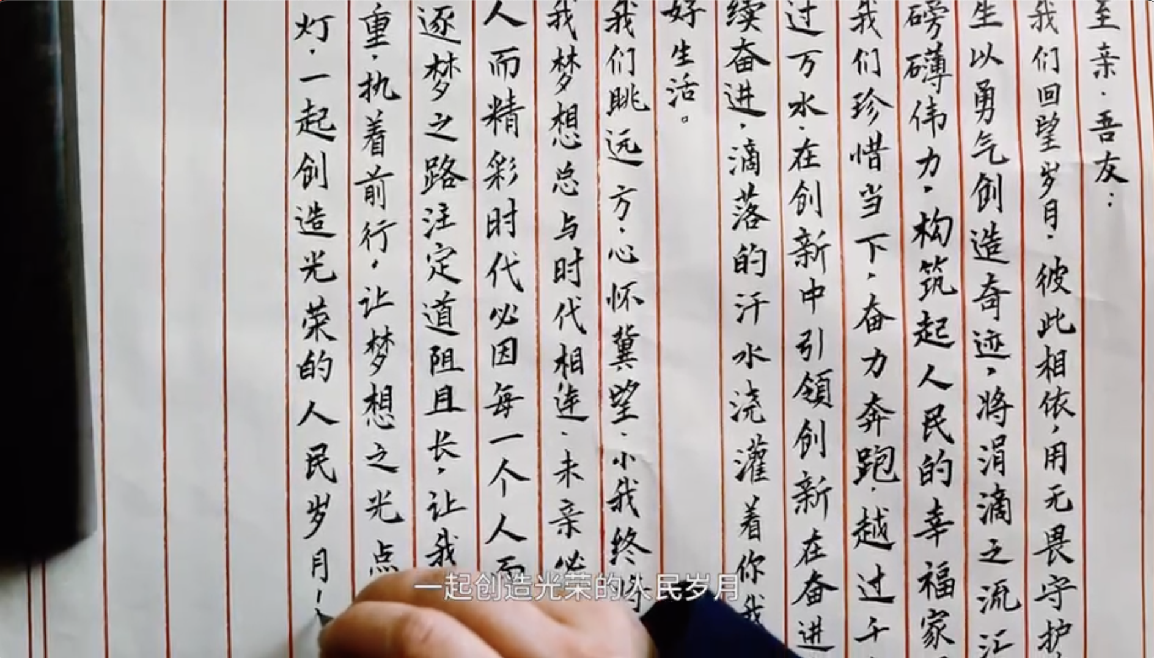 至亲、吾友：
我们回望岁月，彼此相依，用无畏守护
生以勇气创造奇迹，将涓滴之流汇
磅礴伟力，构筑起人民的幸福家
我们珍惜当下，奋力奔跑，越过千
过万水，在创新中引领创新在奋进
续奋进，滴落的汗水浇灌着你我
好生活。
我们眺远方，心怀冀望，小我终将
我梦想总与时代相连，未来必
人而精彩时代必因每一个人而
逐梦之路注定道阻且长，让我
重，执着前行，让梦想之光点
灯，一起创造光荣的人民岁月！
一起创造光荣的人民岁月